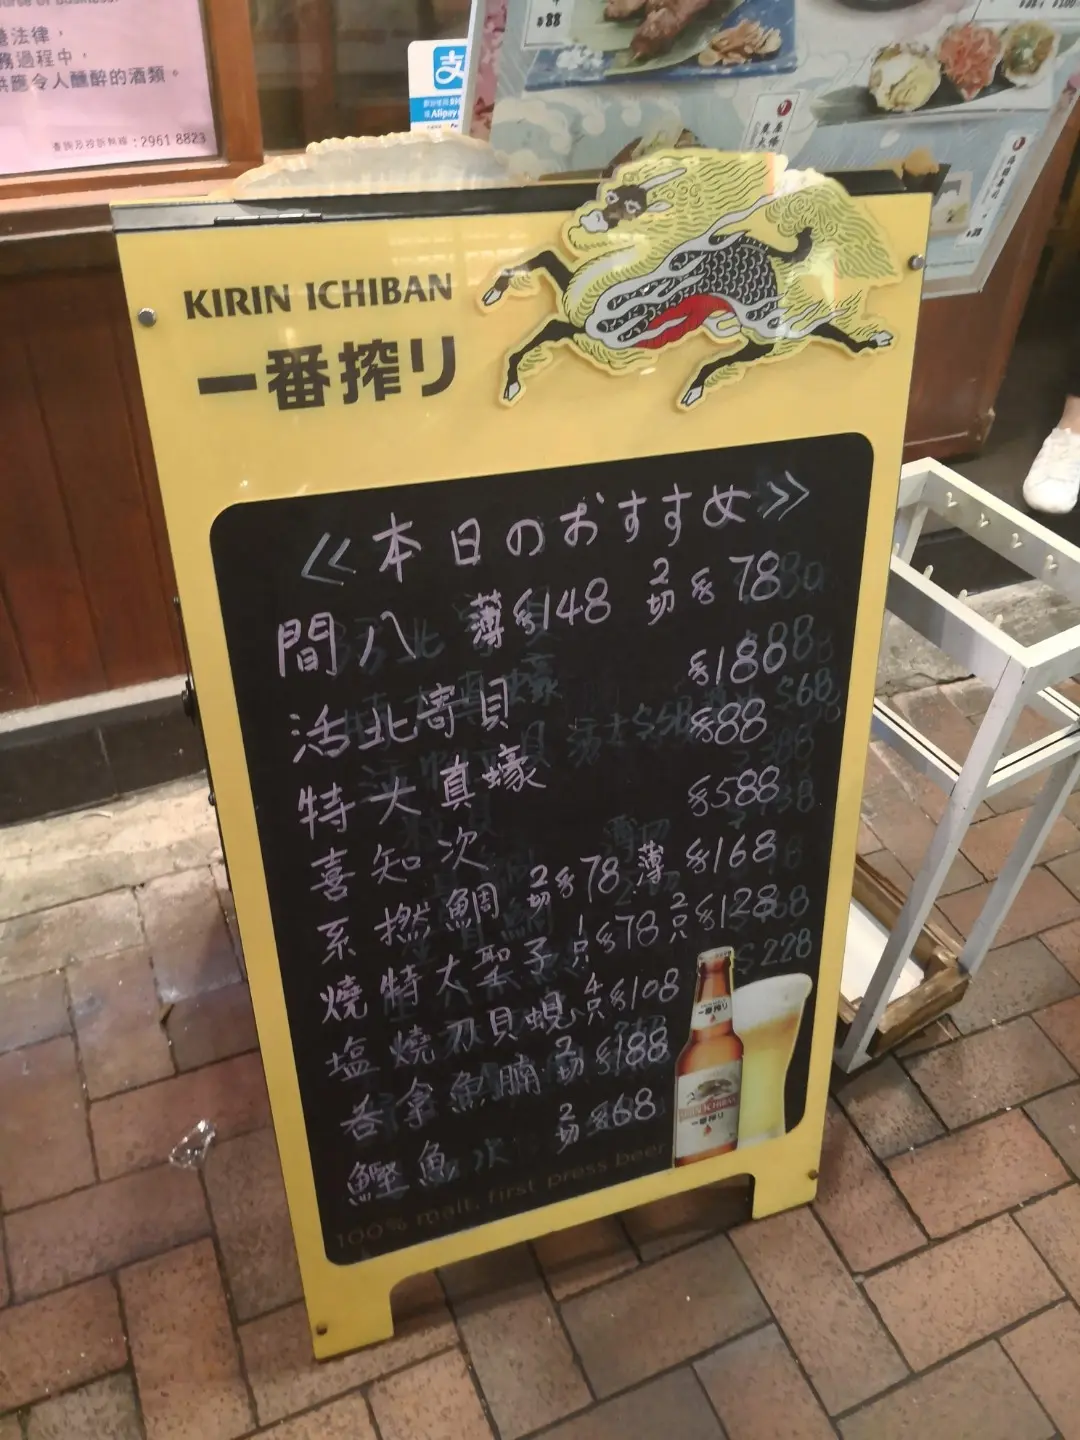 港法律，
務過程中，
供應令人醺醉的酒類。
2961 8823
支
Alipay
$88
KIRIN ICHIBAN
一番搾り
≪本日のおすすめ≫
間八 薄$148 2切$78
活北寄貝 $188
特大真蠔 $88
喜知次 $588
系撚鯛 2切$78 薄$168
燒特大聖子 1只$78 2只$128
塩燒刀貝蜆 4只$108
吞拿魚腩 2切$188
鰹魚 2切$68
$228
100% malt, first press beer
一番搾り
KIRIN ICHIBAN
一番搾り